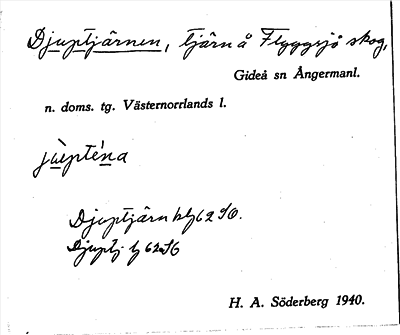 Djuptjärnen, tjärn å Flyggsjö skog,
Gideå sn Ångermanl.
n. doms. tg. Västernorrlands l.
jùpténa
Djuptjärn blg 62 SO.
Djuptj. lj 62 SO
H. A. Söderberg 1940.